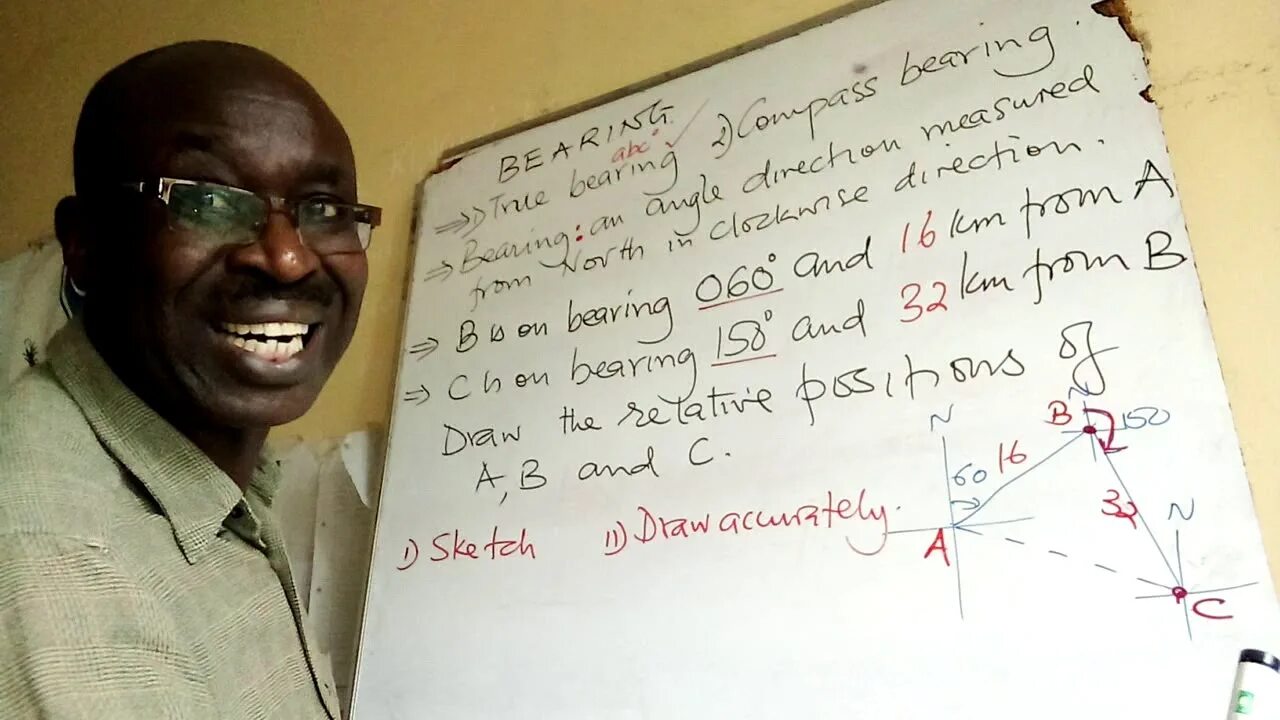 BEARING.
abc°
⇒ 1) True bearing ✓ 2) Compass bearing.
⇒ Bearing: an angle direction measured
from North in clockwise direction.
⇒ B is on bearing 060° and 16 km from A
⇒ C is on bearing 150° and 32 km from B
Draw the relative positions of
A, B and C.
1) Sketch 11) Draw accurately.
N
60
16
A
N
B
150
32
N
C